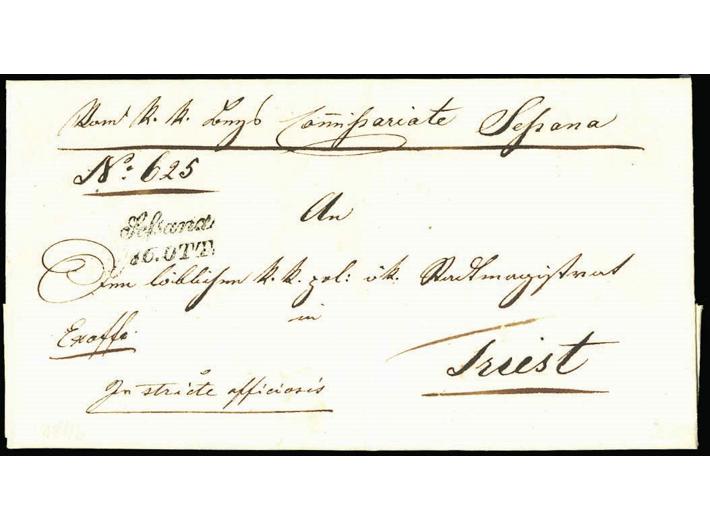 Vom k. k. Bezks Com̄issariate Sessana
No. 625
An
Sessana
16. OTT.
Den löblichen k. k. pol: ök. Stadtmagistrat
in
Exoffo.
Triest
In stricte officiosis